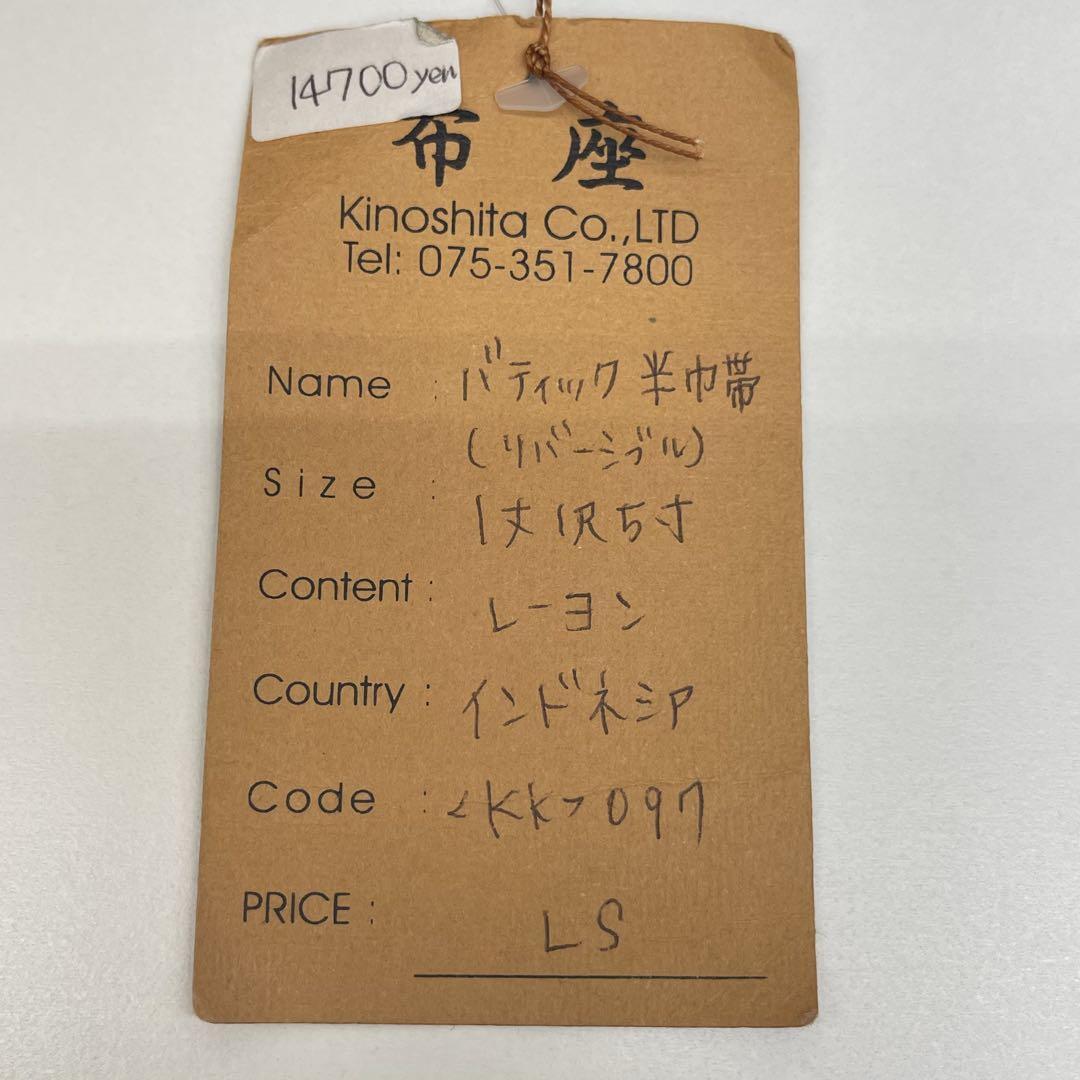 14700yen
布 座
Kinoshita Co.,LTD
Tel: 075-351-7800
Name : バティック半巾帯
(リバーシブル)
Size : 1丈1尺5寸
Content : レーヨン
Country : インドネシア
Code : <KK>097
PRICE : LS